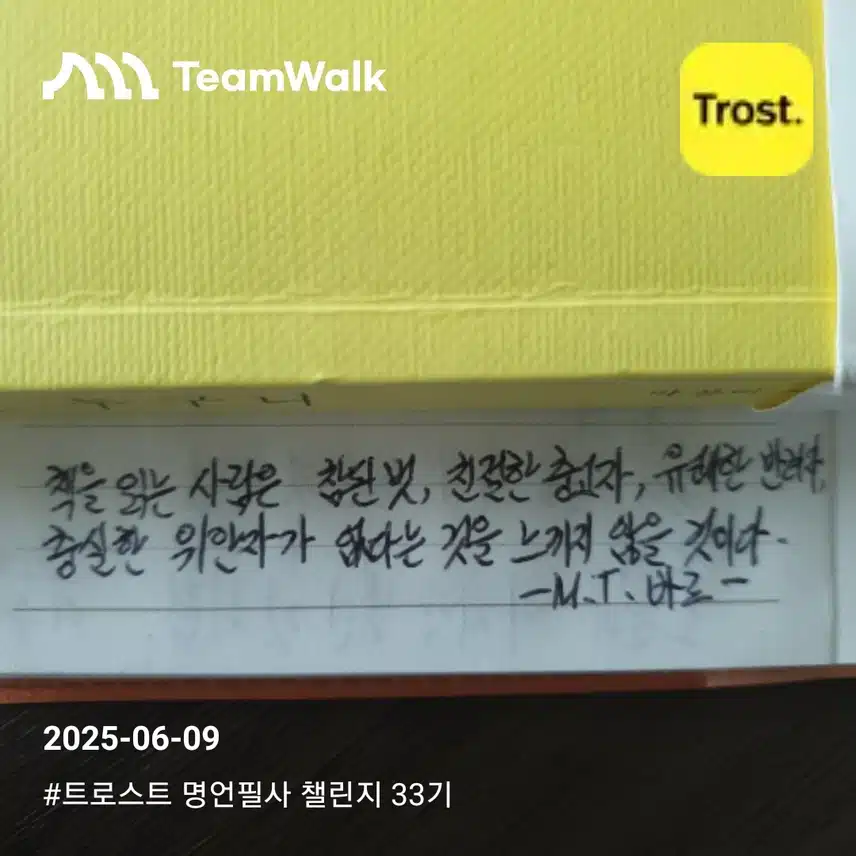 TeamWalk
Trost.
책을 읽는 사람은 참된 벗, 친절한 충고자, 유쾌한 반려자,
충실한 위안자가 없다는 것을 느끼지 않을 것이다.
-M.T. 바로-
2025-06-09
#트로스트 명언필사 챌린지 33기